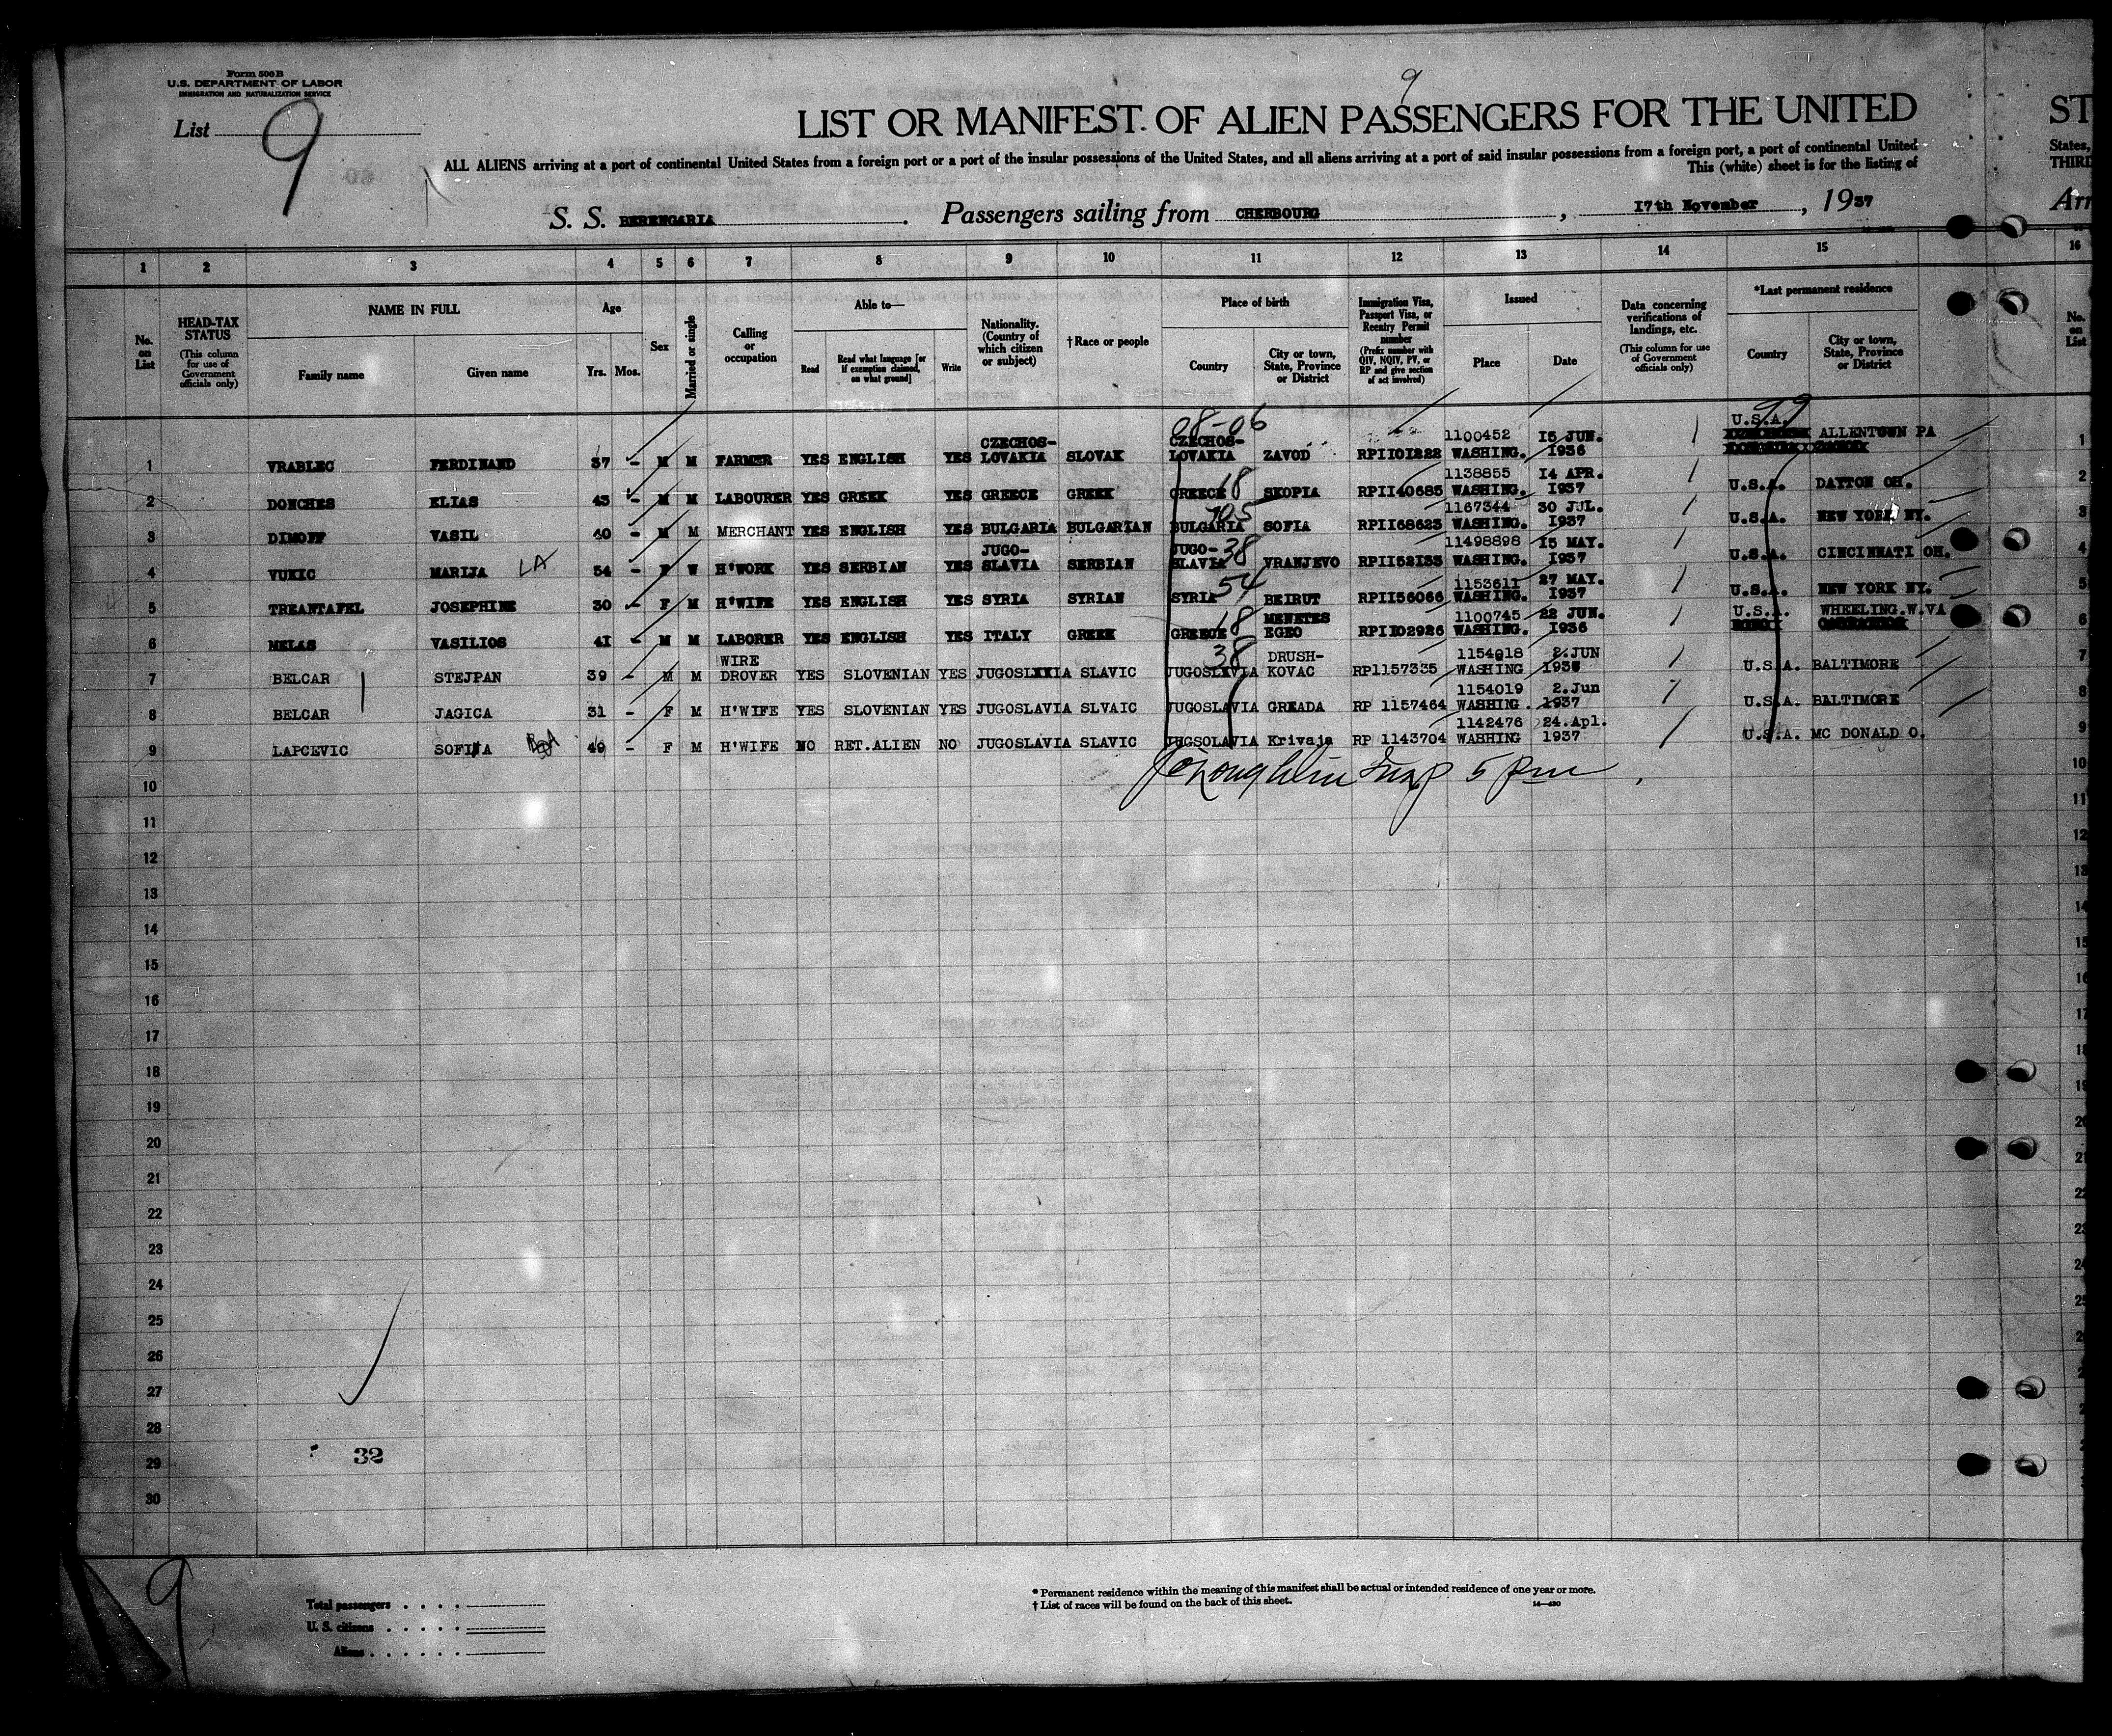 Form 500 B
U.S. DEPARTMENT OF LABOR
IMMIGRATION AND NATURALIZATION SERVICE
List 9
9
LIST OR MANIFEST OF ALIEN PASSENGERS FOR THE UNITED ST
ALL ALIENS arriving at a port of continental United States from a foreign port or a port of the insular possessions of the United States, and all aliens arriving at a port of said insular possessions from a foreign port, a port of continental United States,
This (white) sheet is for the listing of THIRD
S. S. BERENGARIA. Passengers sailing from CHERBOURG, 17th November, 1937 Arr
1 2 3 4 5 6 7 8 9 10 11 12 13 14 15 16
No. on List
HEAD-TAX STATUS (This column for use of Government officials only)
NAME IN FULL
Family name Given name
Age
Yrs. Mos.
Sex
Married or single
Calling or occupation
Able to—
Read
Read what language [or if exemption claimed, on what ground]
Write
Nationality. (Country of which citizen or subject)
† Race or people
Place of birth
Country
City or town, State, Province or District
Immigration Visa, Passport Visa, or Reentry Permit number (Prefix number with QIV, NQIV, PV, or RP and give section of act involved)
Issued
Place Date
Data concerning verifications of landings, etc. (This column for use of Government officials only)
*Last permanent residence
Country
City or town, State, Province or District
No. on List
08-06 99
CZECHOS- CZECHOS- 1100452 15 JUN. U.S.A. ALLENTOWN PA
1 VRABLEC FERDINAND 37 - M M FARMER YES ENGLISH YES LOVAKIA SLOVAK LOVAKIA ZAVOD RPII01222 WASHING. I936 1
1138855 14 APR.
2 DONCHES ELIAS 43 - M M LABOURER YES GREEK YES GREECE GREEK GREECE 18 SKOPIA RPII40685 WASHING. I937 U.S.A. DAYTON OH. 2
1167344 30 JUL.
3 DIMOFF VASIL 40 - M M MERCHANT YES ENGLISH YES BULGARIA BULGARIAN BULGARIA 105 SOFIA RPII68623 WASHING. I937 U.S.A. NEW YORK NY. 3
JUGO- JUGO- 38 11498898 15 MAY.
4 VUKIC MARIJA LA 54 - F W H'WORK YES SERBIAN YES SLAVIA SERBIAN SLAVIA VRANJEVO RPII52133 WASHING. I937 U.S.A. CINCINNATI OH. 4
54 1153611 27 MAY.
5 TREANTAFEL JOSEPHINE 30 - F M H'WIFE YES ENGLISH YES SYRIA SYRIAN SYRIA BEIRUT RPII56066 WASHING. I937 U.S.A. NEW YORK NY. 5
MENETES 1100745 22 JUN. U.S.A. WHEELING.W.VA
6 MELAS VASILIOS 41 - M M LABORER YES ENGLISH YES ITALY GREEK GREECE 18 EGEO RPII02926 WASHING. I936 6
WIRE 38 DRUSH- 1154018 2.JUN
7 BELCAR STEJPAN 39 - M M DROVER YES SLOVENIAN YES JUGOSLXXIA SLAVIC JUGOSLAVIA KOVAC RP1157335 WASHING U.S.A. BALTIMORE 7
1154019 2.Jun
8 BELCAR JAGICA 31 - F M H'WIFE YES SLOVENIAN YES JUGOSLAVIA SLVAIC JUGOSLAVIA GREADA RP 1157464 WASHING. 1937 U.S.A. BALTIMORE 8
1142476 24.Apl.
9 LAPCEVIC SOFIJA 49 - F M H'WIFE NO RET.ALIEN NO JUGOSLAVIA SLAVIC JUGSOLAVIA Krivaja RP 1143704 WASHING 1937 U.S.A. MC DONALD O. 9
Insp 5 pm
10 10
11 11
12 12
13 13
14 14
15 15
16 16
17 17
18 18
19 19
20 20
21 21
22 22
23 23
24 24
25 25
26
27
28
29
30
32
9
Total passengers
U. S. citizens
Aliens
* Permanent residence within the meaning of this manifest shall be actual or intended residence of one year or more.
† List of races will be found on the back of this sheet.
14—430